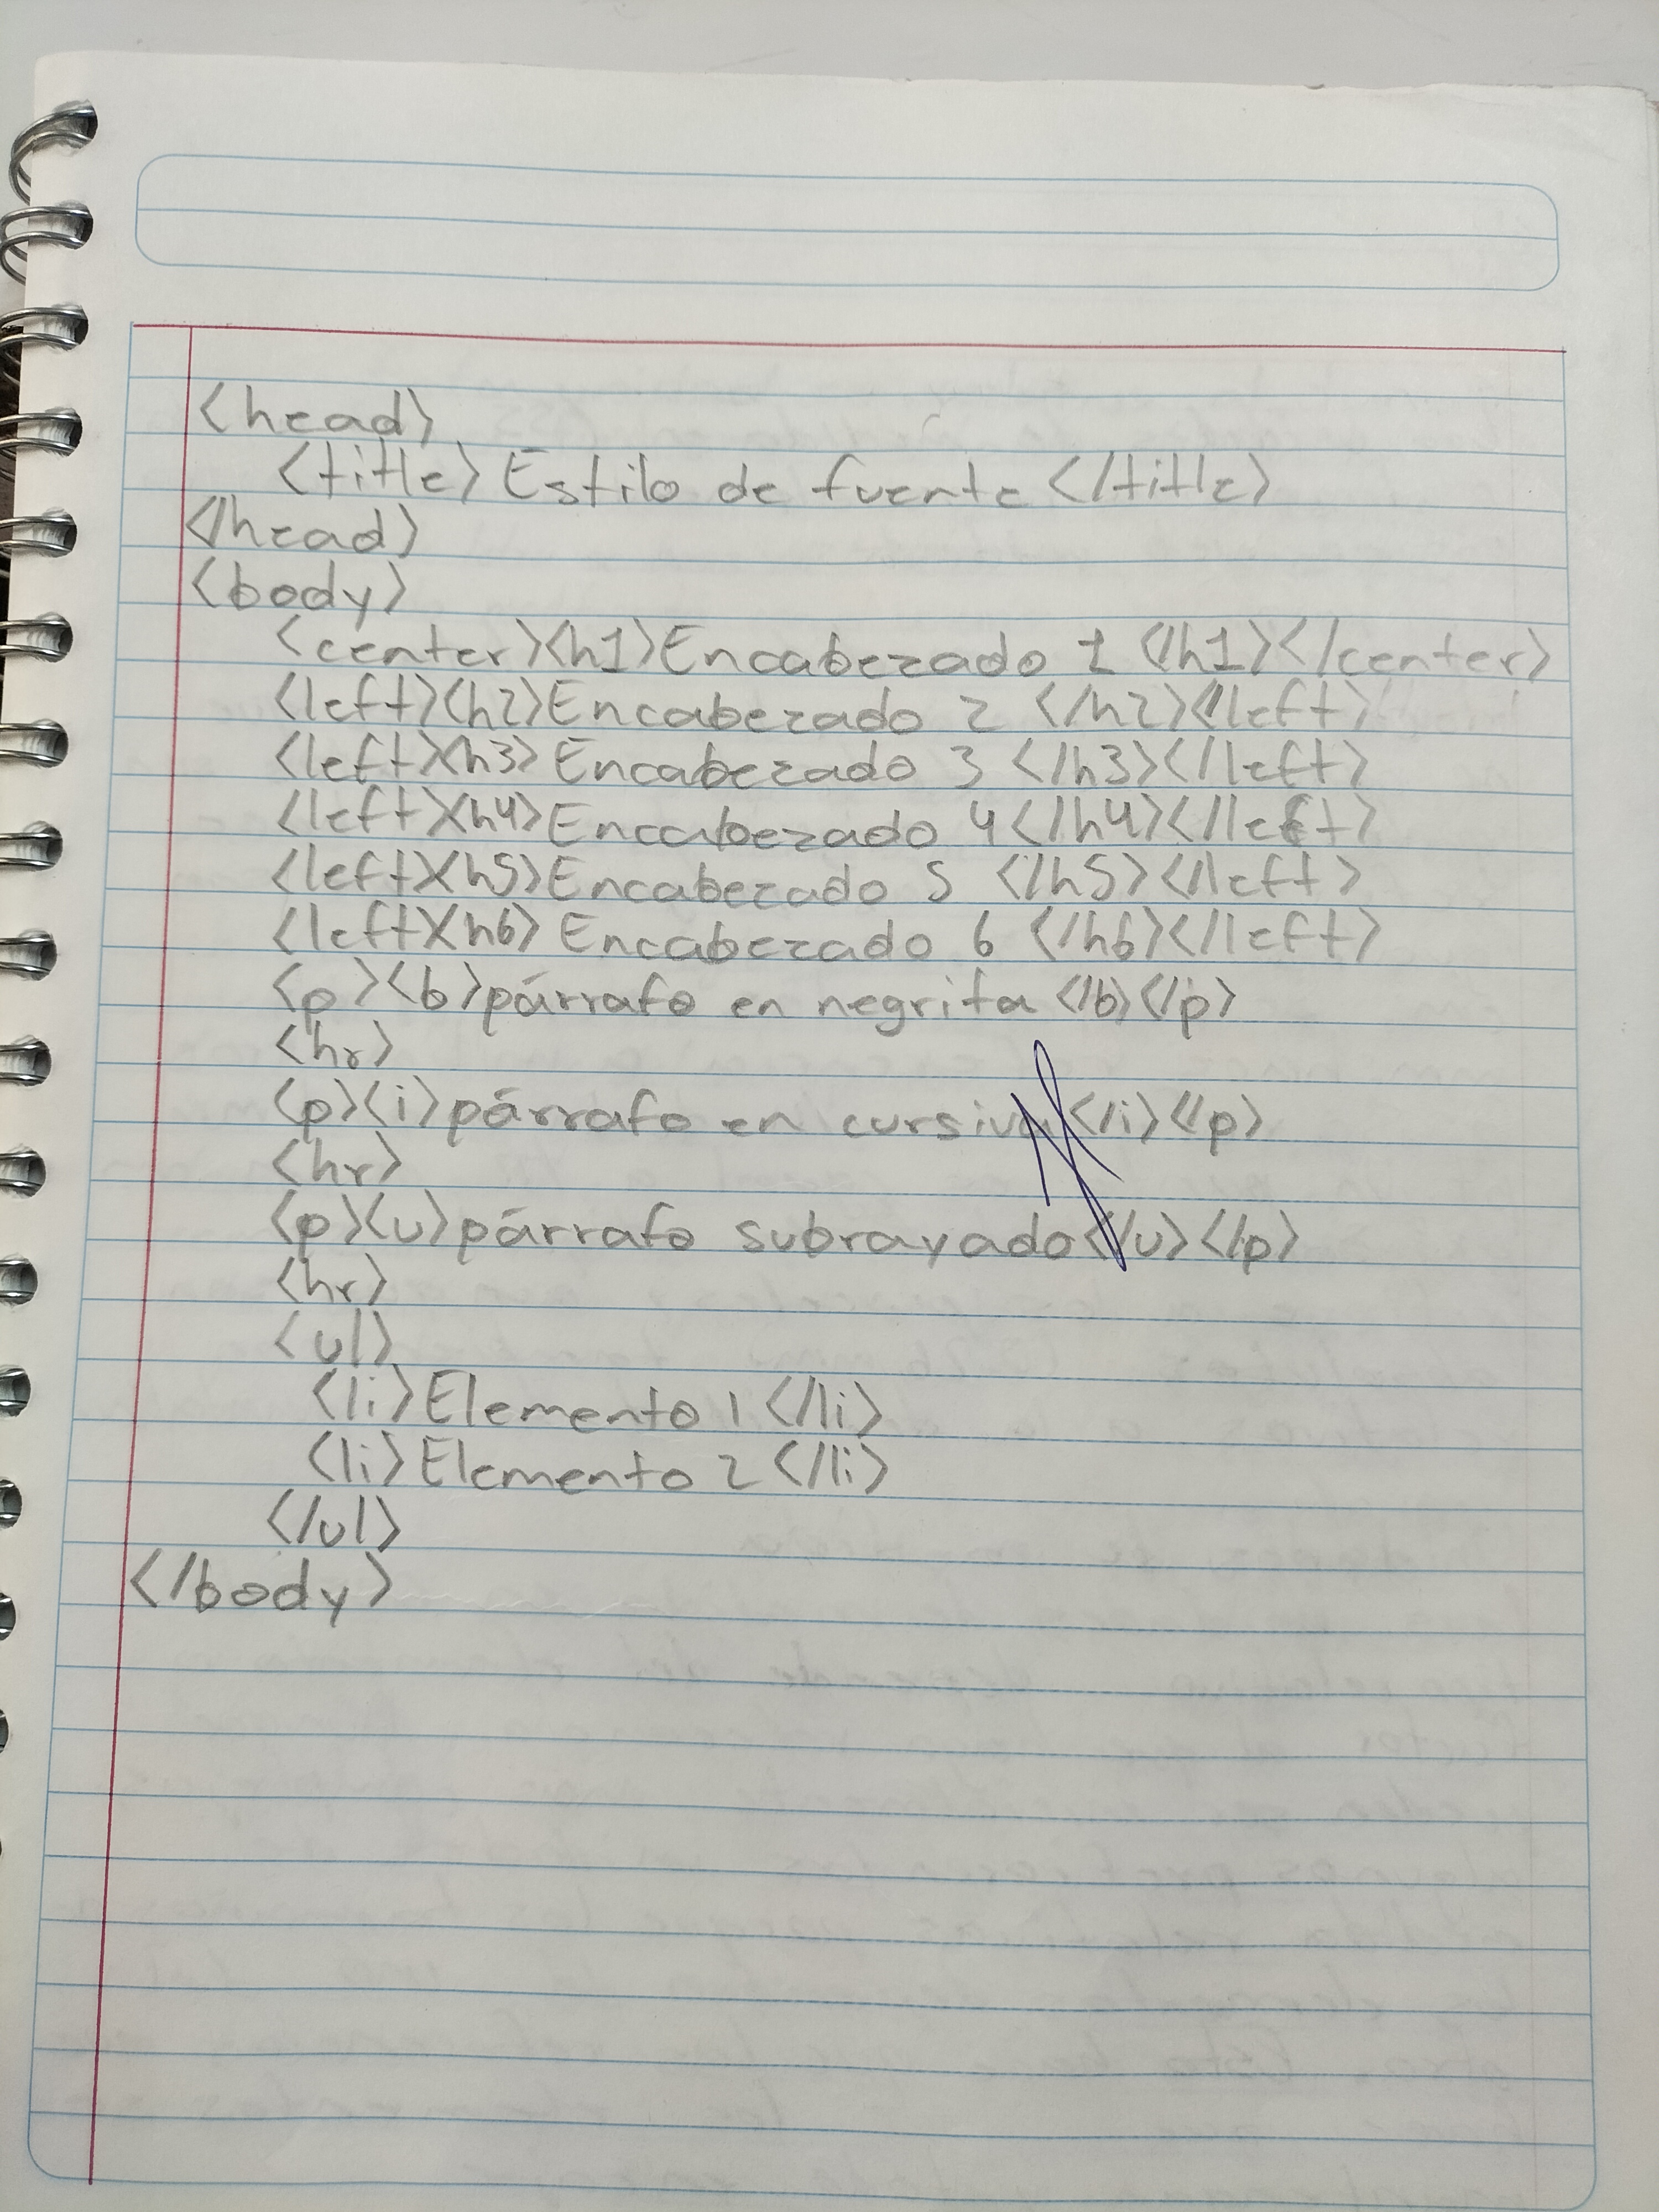 <head>
<title>Estilo de fuente</title>
</head>
<body>
<center><h1>Encabezado 1</h1></center>
<left><h2>Encabezado 2</h2></left>
<left><h3>Encabezado 3</h3></left>
<left><h4>Encabezado 4</h4></left>
<left><h5>Encabezado 5</h5></left>
<left><h6>Encabezado 6</h6></left>
<p><b>párrafo en negrita</b></p>
<hr>
<p><i>párrafo en cursiva</i></p>
<hr>
<p><u>párrafo subrayado</u></p>
<hr>
<ul>
<li>Elemento 1</li>
<li>Elemento 2</li>
</ul>
</body>